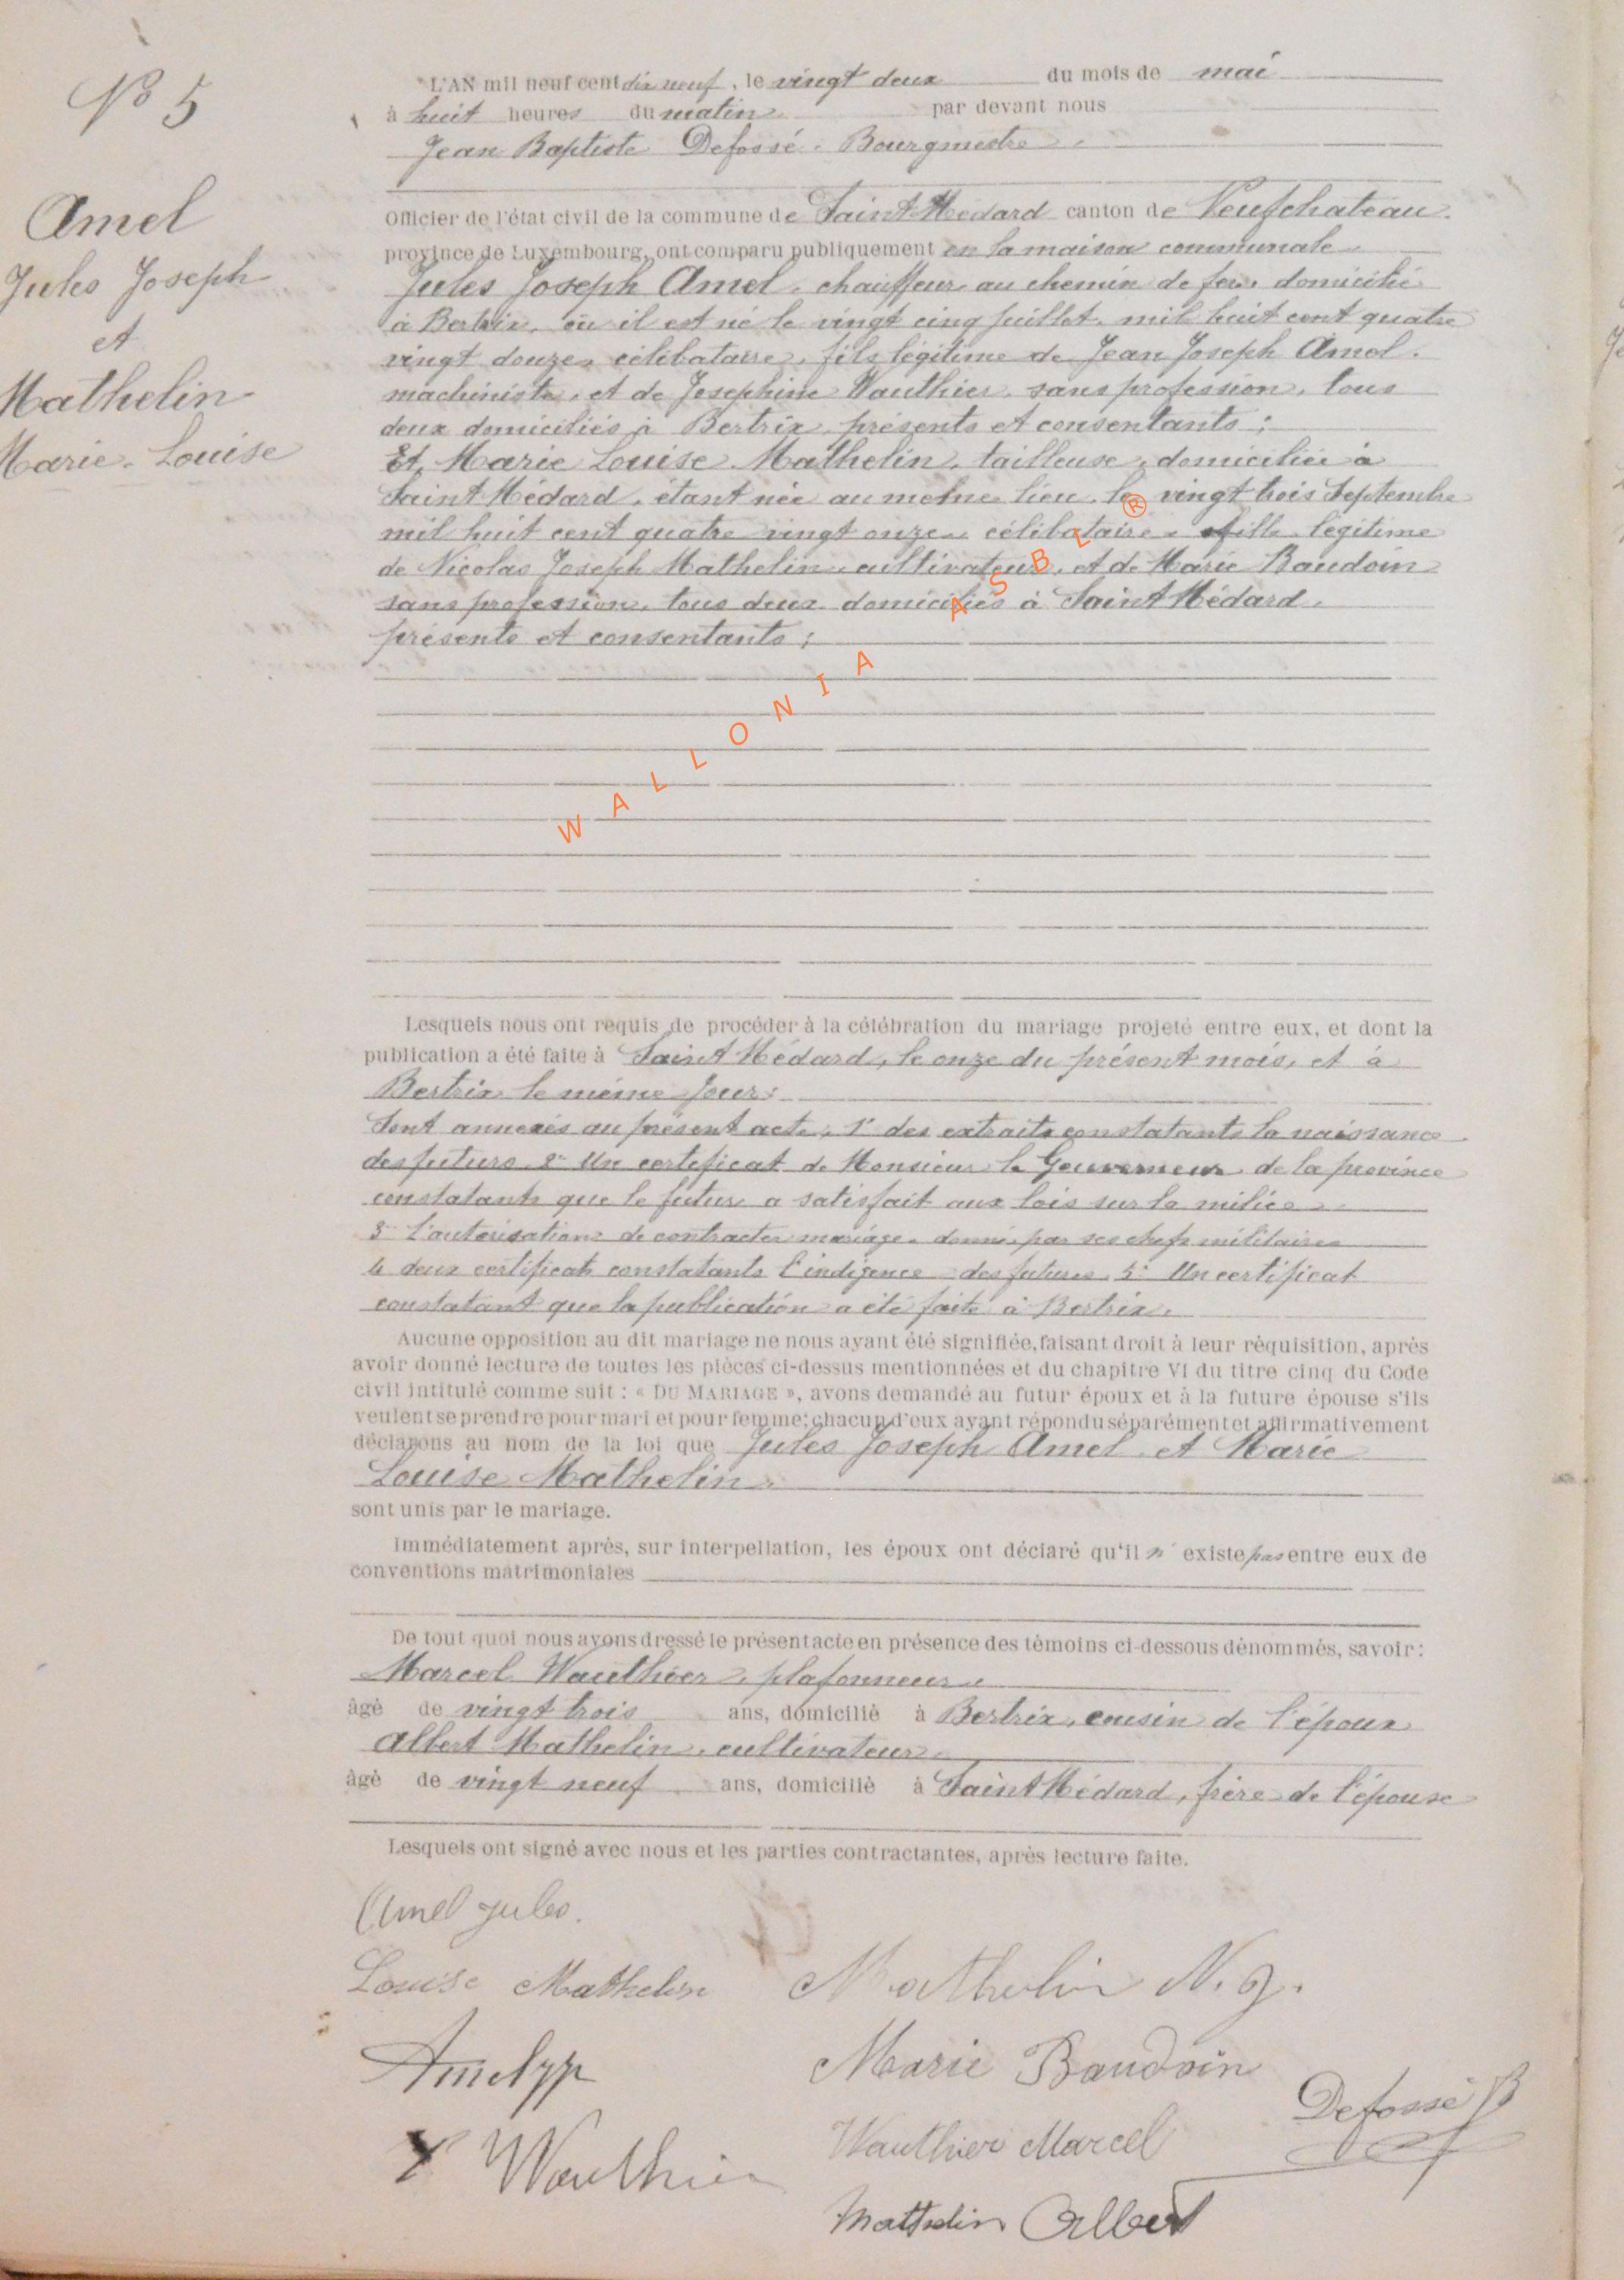 Nº 5
Amel
Jules Joseph
et
Mathelin
Marie-Louise
L'AN mil neuf cent dix neuf, le vingt deux du mois de mai
à huit heures du matin par devant nous
Jean Baptiste Defossé, Bourgmestre,
Officier de l'état civil de la commune de Saint Médard canton de Neufchateau.
province de Luxembourg, ont comparu publiquement en la maison communale
Jules Joseph Amel, chauffeur au chemin de fer, domicilié
à Bertrix, où il est né le vingt cinq juillet, mil huit cent quatre
vingt douze, célibataire, fils légitime de Jean Joseph Amel,
machiniste, et de Josephine Wauthier, sans profession, tous
deux domiciliés à Bertrix, présents et consentants ;
Et, Marie Louise Mathelin, tailleuse, domiciliée à
Saint Médard, étant née au même lieu, le vingt trois Septembre
mil huit cent quatre vingt onze, célibataire, fille légitime
de Nicolas Joseph Mathelin, cultivateur, et de Marie Baudoin
sans profession, tous deux domiciliés à Saint Médard,
présents et consentants ;
WALLONIA ASBL ®
Lesquels nous ont requis de procéder à la célébration du mariage projeté entre eux, et dont la
publication a été faite à Saint Médard, le onze du présent mois, et à
Bertrix le même jour ;
Sont annexés au présent acte, 1° des extraits constatants la naissance
des futurs, 2° Un certificat de Monsieur le Gouverneur de la province
constatant que le futur a satisfait aux lois sur la milice,
3° l'autorisation de contracter mariage, donnée par ses chefs militaires
4 deux certificats constatants l'indigence des futurs, 5° Un certificat
constatant que la publication a été faite à Bertrix.
Aucune opposition au dit mariage ne nous ayant été signifiée, faisant droit à leur réquisition, après
avoir donné lecture de toutes les pièces ci-dessus mentionnées et du chapitre VI du titre cinq du Code
civil intitulé comme suit : « DU MARIAGE », avons demandé au futur époux et à la future épouse s'ils
veulent se prendre pour mari et pour femme; chacun d'eux ayant répondu séparément et affirmativement
déclarons au nom de la loi que Jules Joseph Amel et Marie
Louise Mathelin
sont unis par le mariage.
Immédiatement après, sur interpellation, les époux ont déclaré qu'il n'existe pas entre eux de
conventions matrimoniales
De tout quoi nous avons dressé le présent acte en présence des témoins ci-dessous dénommés, savoir :
Marcel Wauthier, plafonneur,
âgé de vingt trois ans, domicilié à Bertrix, cousin de l'époux
Albert Mathelin, cultivateur,
âgé de vingt neuf ans, domicilié à Saint Médard, frère de l'épouse
Lesquels ont signé avec nous et les parties contractantes, après lecture faite.
Amel Jules.
Louise Mathelin Mathelin N. J.
Marie Baudoin
Defossé JB
Wauthier Wauthier Marcel
Mathelin Albert